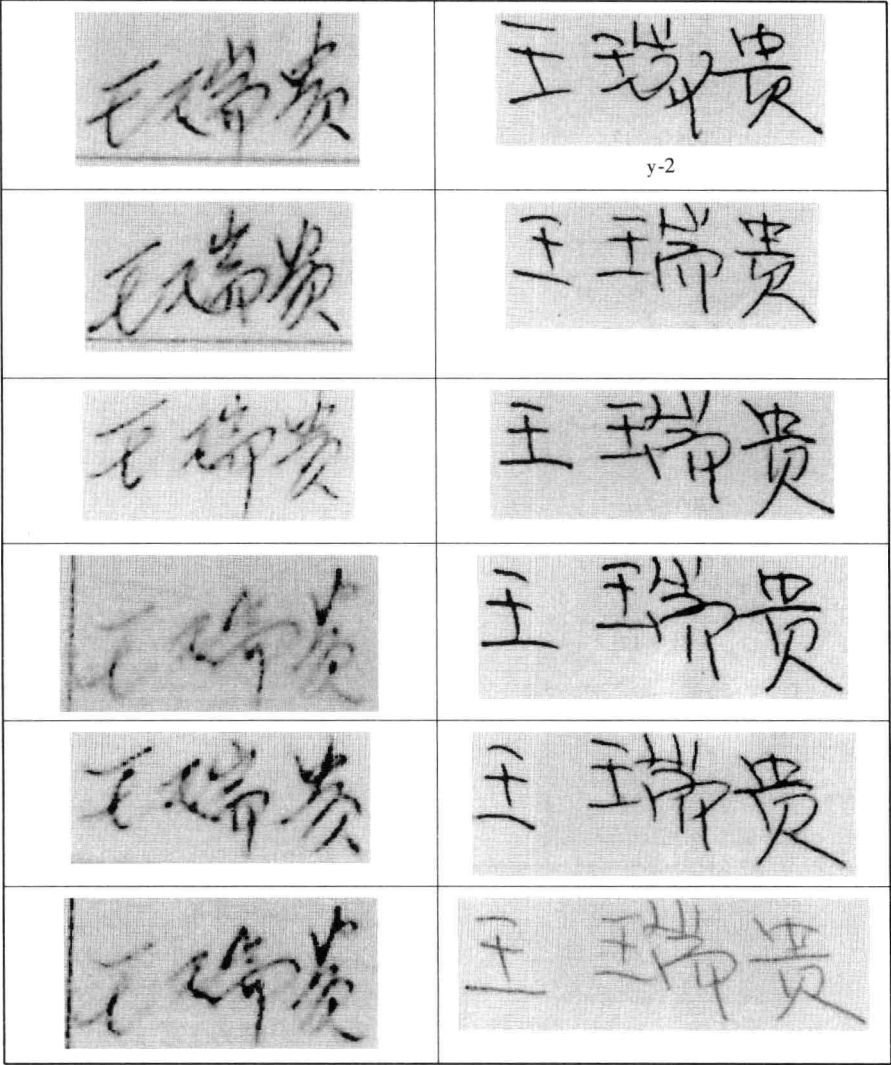 王瑞贵 王瑞贵
y-2
王瑞贵 王瑞贵
王瑞贵 王瑞贵
王瑞贵 王瑞贵
王瑞贵 王瑞贵
王瑞贵 王瑞贵